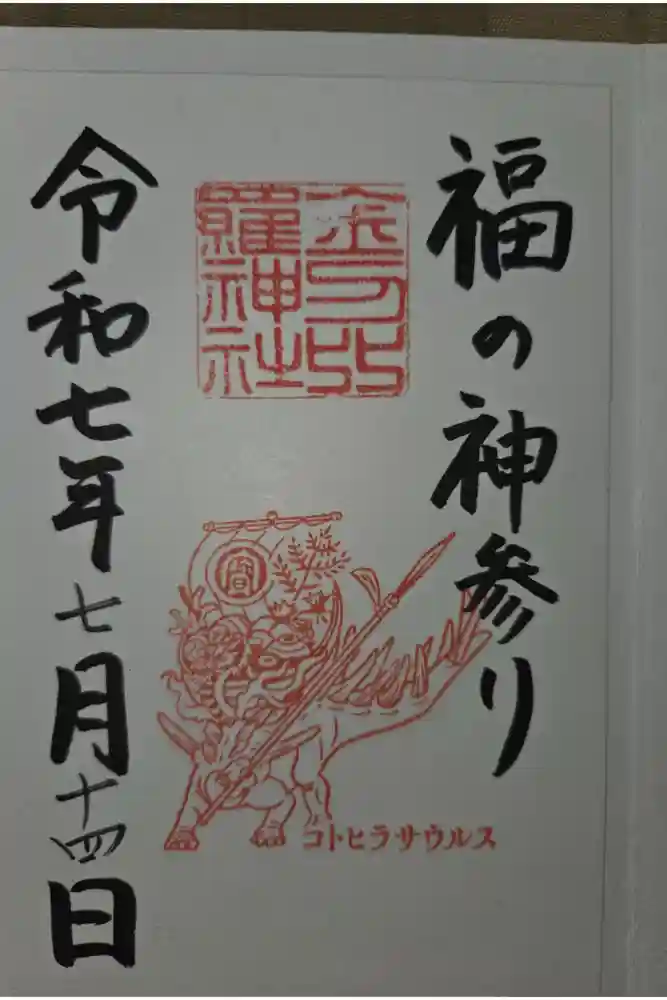 福の神参り
金刀比
羅神社
㊂
コトヒラサウルス
令和七年七月十四日